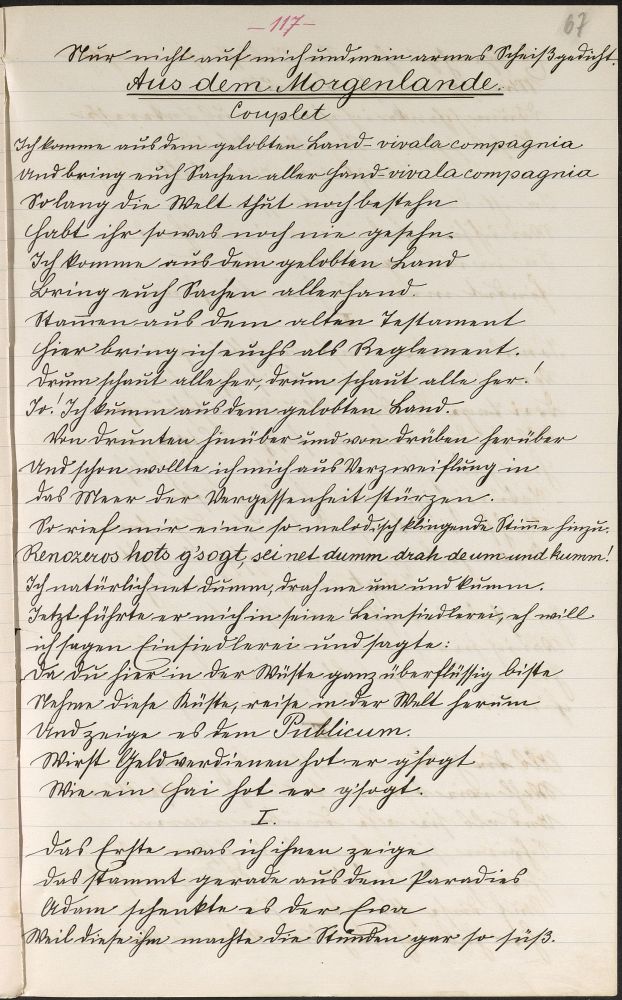 - 117 -
67
Nur nicht auf mich und mein armes Scheißgedicht.
Aus dem Morgenlande.
Couplet
Ich komme aus dem gelobten Land - vivala compagnia
Und bring euch Sachen aller Hand - vivala compagnia
So lang die Welt thut noch bestehn
Habt ihr sowas noch nie gesehn.
Ich komme aus dem gelobten Land
Bring euch Sachen allerhand.
Stam̄en aus dem alten Testament
Hier bring ich euchs als Reglement.
Drum schaut alle her, drum schaut alle her!
Jo! Ich kumm aus dem gelobten Land.
Von drunten hinüber und von drüben herüber
Und schon wollte ich mich aus Verzweiflung in
das Meer der Vergessenheit stürzen.
So rief mir eine so melodisch klingende Stim̄e hinzu.
Renozeros hots g'sogt, sei net dumm drah de um und kumm!
Ich natürlich net dumm, drah me um und kumm.
Jetzt führte er mich in seine Leimsiedlerei, eh will
ich sagen Einsiedlerei und sagte:
Da du hier in der Wüste ganz überflüssig biste
Nehme diese Küste, reise in der Welt herum
Und zeige es dem Publicum.
Wirst Geld verdienen hot er g'sogt
Wie ein Hai hot er g'sogt.
I.
Das Erste was ich ihnen zeige
Das stammt gerade aus dem Paradies
Adam schenkte es der Eva
Weil diese ihm machte die Stunden gar so süß.